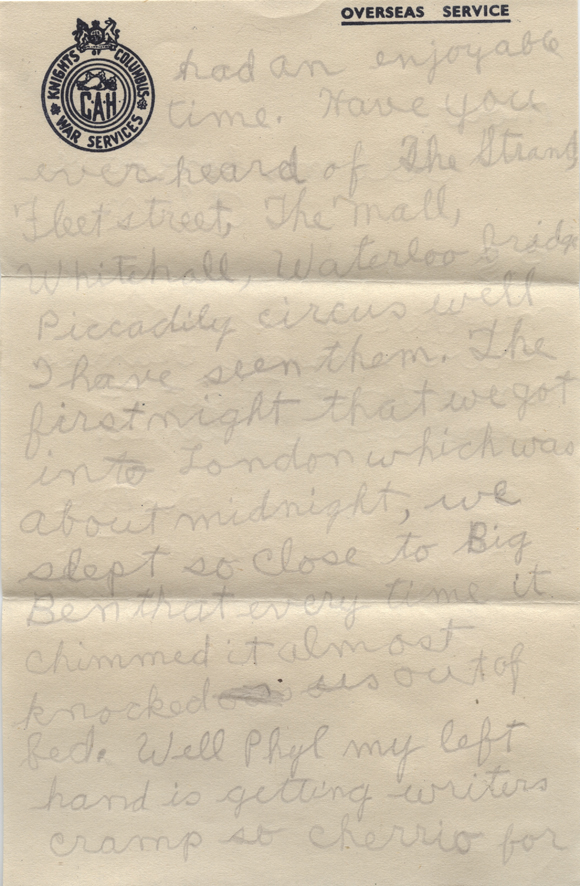 OVERSEAS SERVICE
KNIGHTS OF COLUMBUS
CAH
WAR SERVICES
had an enjoyable
time. Have you
ever heard of The Strand
Fleet street, The Mall,
Whitehall, Waterloo bridge
Piccadily circus well
I have seen them. The
first night that we got
into London which was
about midnight, we
slept so close to Big
Ben that every time it
chimmed it almost
knocked us out of
bed. Well Phyl my left
hand is getting writers
cramp so cherrio for